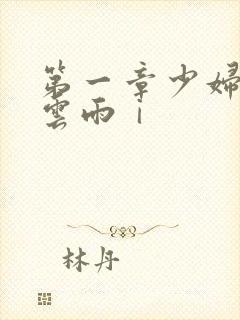 第一章少婦
雲雨丨
林丹